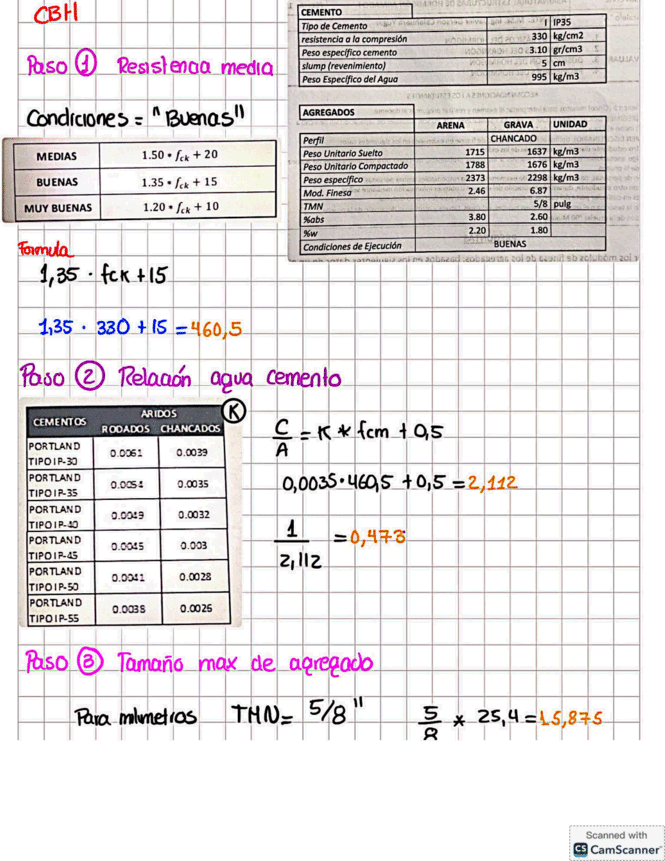 CBH
Paso 1 Resistencia media
Condiciones = "Buenas"
MEDIAS 1.50 * fck + 20
BUENAS 1.35 * fck + 15
MUY BUENAS 1.20 * fck + 10
CEMENTO
Tipo de Cemento I IP35
resistencia a la compresión 330 kg/cm2
Peso especifico cemento 3.10 gr/cm3
slump (revenimiento) 5 cm
Peso Especifico del Agua 995 kg/m3
AGREGADOS
ARENA GRAVA UNIDAD
Perfil CHANCADO
Peso Unitario Suelto 1715 1637 kg/m3
Peso Unitario Compactado 1788 1676 kg/m3
Peso especifico 2373 2298 kg/m3
Mod. Finesa 2.46 6.87
TMN 5/8 pulg
%abs 3.80 2.60
%w 2.20 1.80
Condiciones de Ejecución BUENAS
Formula
1,35 · fck + 15
1,35 · 330 + 15 = 460,5
Paso 2 Relación agua cemento
CEMENTOS ARIDOS K
RODADOS CHANCADOS
PORTLAND TIPO IP-30 0.0061 0.0039
PORTLAND TIPO IP-35 0.0054 0.0035
PORTLAND TIPO IP-40 0.0049 0.0032
PORTLAND TIPO IP-45 0.0045 0.003
PORTLAND TIPO IP-50 0.0041 0.0028
PORTLAND TIPO IP-55 0.0038 0.0026
C/A = K * fcm + 0,5
0,0035 · 460,5 + 0,5 = 2,112
1/2,112 = 0,473
Paso 3 Tamaño max de agregado
Para milimetros TMN = 5/8" 5/8 * 25,4 = 15,875
Scanned with
CS CamScanner